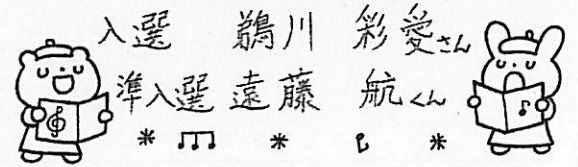 入選 鵜川 彩愛さん
準入選 遠藤 航くん